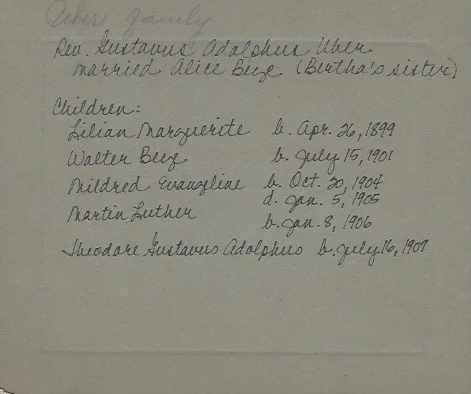 Uber Family
Rev. Gustavus Adolphus Uber
married Alice Beye (Bertha's sister)
Children:
Lilian Marguerite b. Apr. 26, 1899
Walter Beye b. July 15, 1901
Mildred Evangeline b. Oct. 20, 1904
d. Jan. 5, 1905
Martin Luther b. Jan. 8, 1906
Theodore Gustavus Adolphus b. July 16, 1907